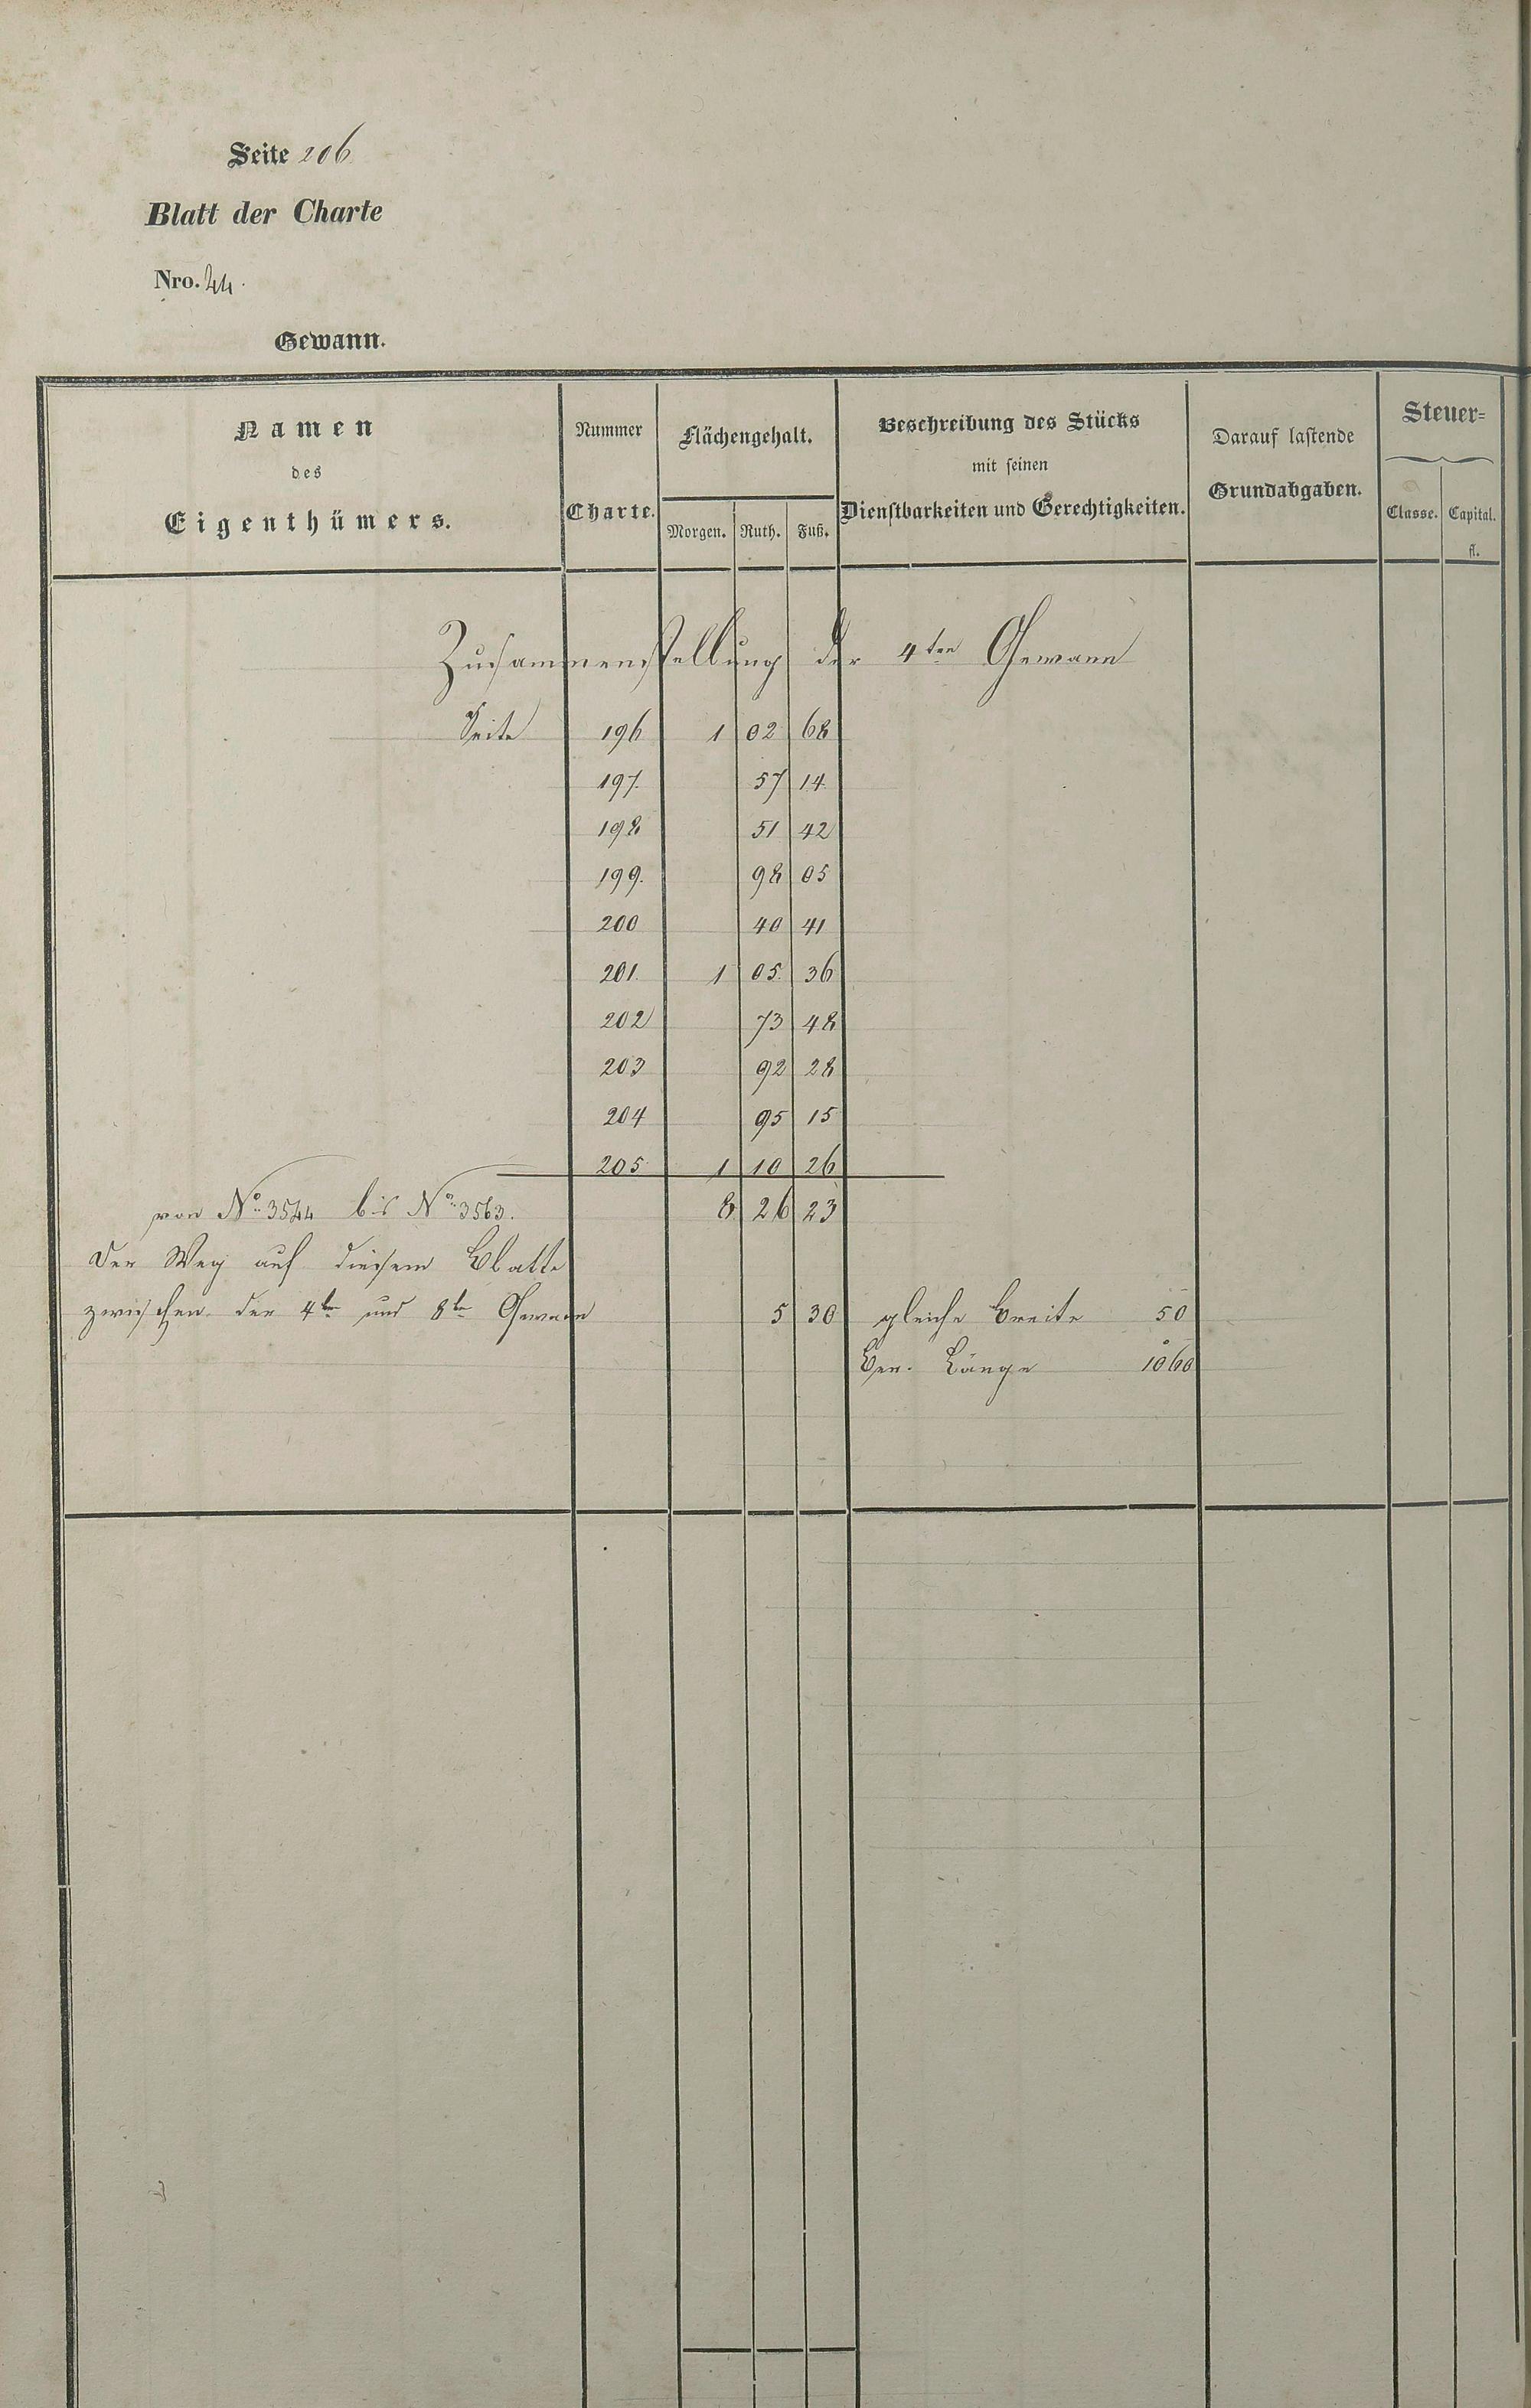 Seite 206
Blatt der Charte
Nro. 44.
Gewann.
Namen des Eigenthümers.
Nummer Charte.
Flächengehalt.
Morgen. Ruth. Fuß.
Beschreibung des Stücks mit seinen Dienstbarkeiten und Gerechtigkeiten.
Darauf lastende Grundabgaben.
Steuer=
Classe. Capital. fl.
Zusammenstellung der 4ten Gewann
Seite 196 1 02 68
197. 57 14
198 51 42
199. 98 05
200 40 41
201. 1 05. 36
202 73 48
203 92 28
204 95 15
205 1 10 26
von No. 3544 bis No. 3563. 8. 26 23
Der Weg auf diesem Blatte
zwischen der 4ten und 8ten Gewann 5 30 gleiche Breite 50
Ber. Länge 1060